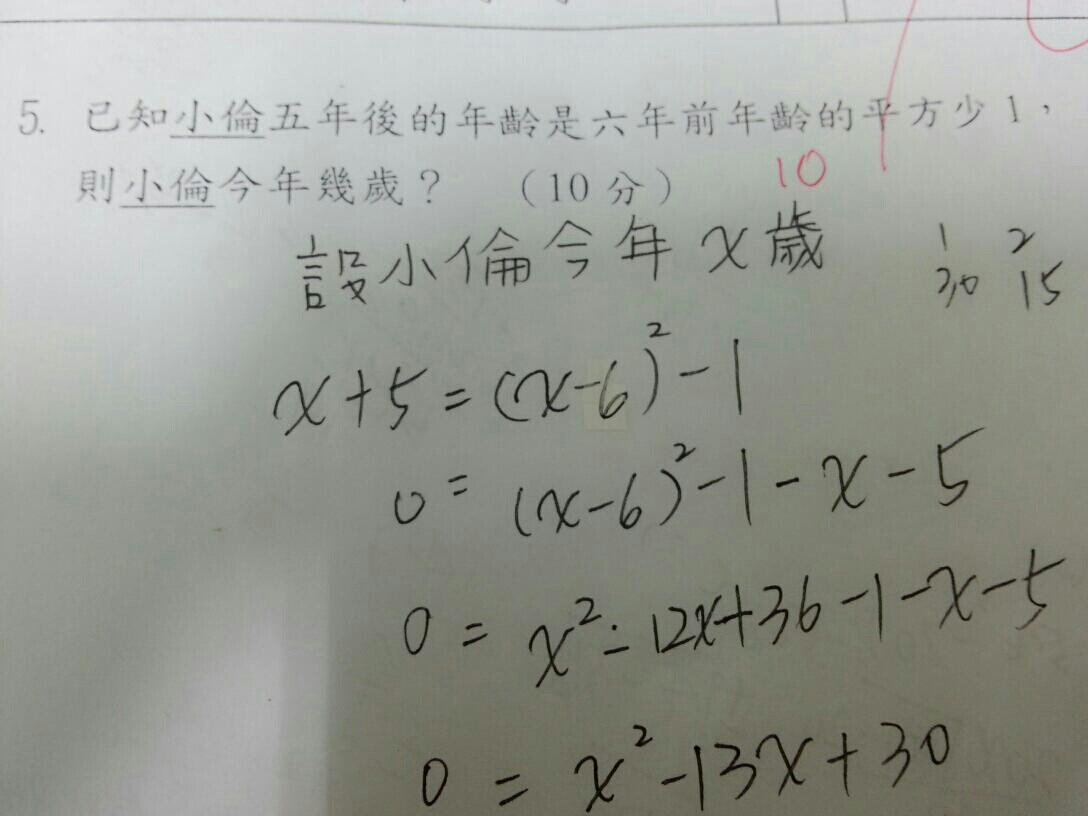 5. 已知小倫五年後的年齡是六年前年齡的平方少1，
則小倫今年幾歲？ （10分） 10
設小倫今年x歲
1 2
30 15
x+5=(x-6)²-1
0=(x-6)²-1-x-5
0=x²-12x+36-1-x-5
0=x²-13x+30